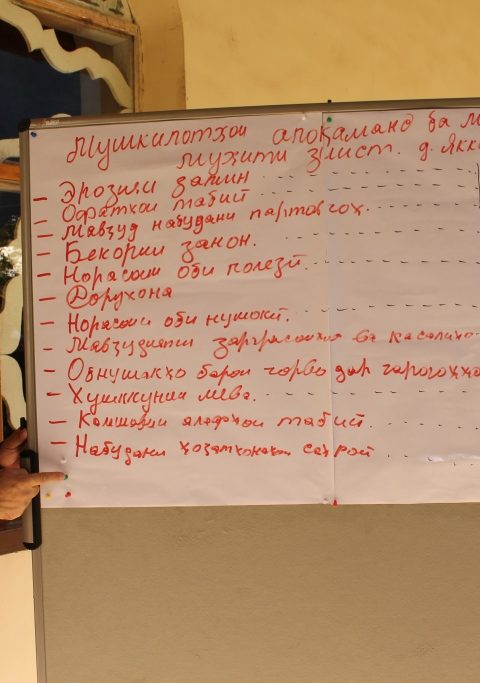 Мушкилотҳои алоқаманд ба м
муҳити зист. д. Якк
– Эрозияи замин
– Офатҳои табиӣ
– Мавҷуд набудани партовгоҳ.
– Бекории занон.
– Норасоии оби полезӣ.
– Дорухона
– Норасоии оби нушокӣ.
– Мавҷудияти зараррасонҳо ва касалиҳо
– Обнушакҳо барои чорво дар чарогоҳҳо
– Хушккунии мева.
– Камшавии алафҳои табиӣ.
– Набудани ҳоҷатхонаҳои саҳроӣ